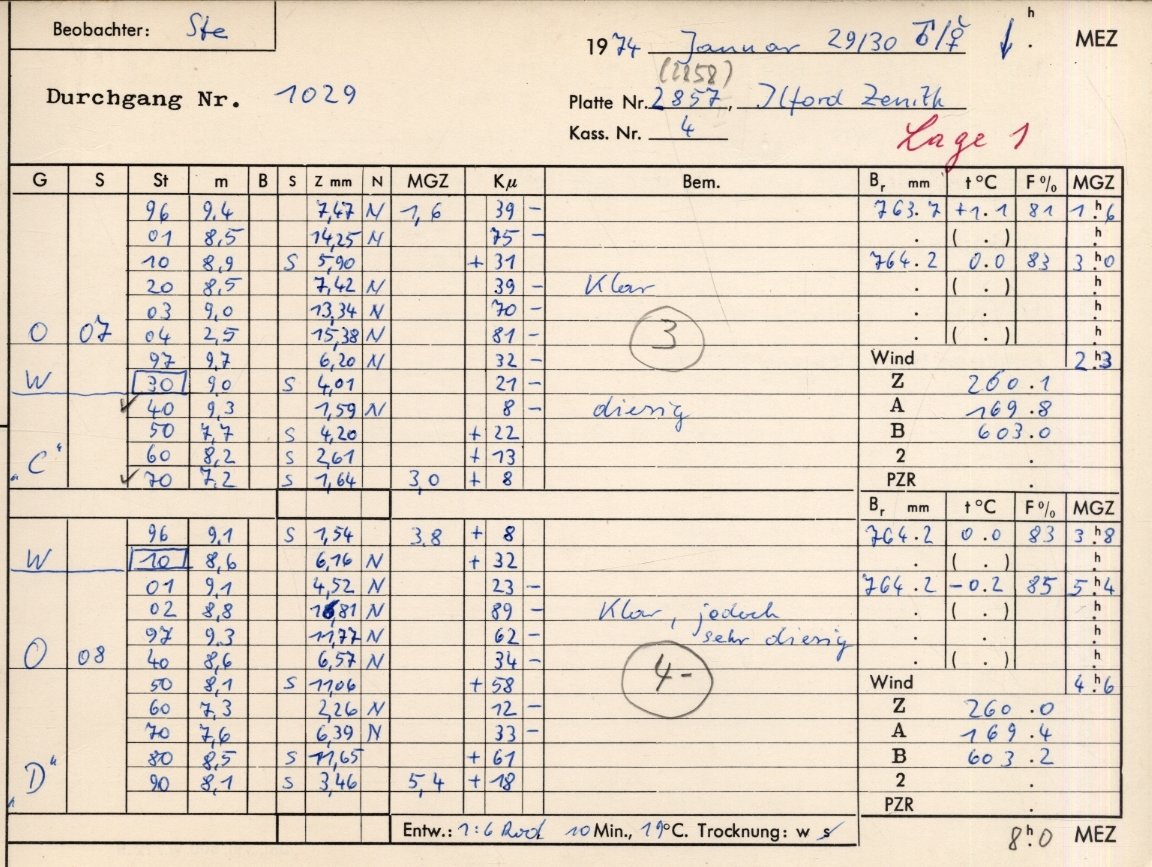 Beobachter: Ste
1974 Januar 29/30 ♂/♀ ↓ h . MEZ
Durchgang Nr. 1029
(2858)
Platte Nr. 2857, Ilford Zenith
Kass. Nr. 4
Lage 1
G S St m B S Z mm N MGZ Kμ Bem. Br mm t°C F% MGZ
96 9,4 7,47 N 1,6 39 - 763.7 +1.1 81 1h.6
01 8,5 14,25 N 75 - . ( . ) h.
10 8,9 S 5,90 + 31 764.2 0.0 83 3h.0
20 8,5 7,42 N 39 - Klar . ( . ) h.
03 9,0 13,34 N 70 - . . h.
O 07 04 2,5 15,38 N 81 - 3 . ( . ) h.
97 9,7 6,20 N 32 - Wind 2h.3
W 30 9,0 S 4,01 21 - Z 260.1
✓ 40 9,3 1,59 N 8 - diesig A 169.8
50 7,7 S 4,20 + 22 B 603.0
"C" 60 8,2 S 2,61 + 13 2 .
✓ 70 7,2 S 1,64 3,0 + 8 PZR .
Br mm t°C F% MGZ
96 9,1 S 1,54 3,8 + 8 764.2 0.0 83 3h.8
W 10 8,6 6,16 N + 32 . ( . ) h.
01 9,1 4,52 N 23 - 764.2 -0.2 85 5h.4
02 8,8 16,81 N 89 - Klar, jedoch . ( . ) h.
97 9,3 11,77 N 62 - sehr diesig . . h.
O 08 40 8,6 6,57 N 34 - 4- . ( . ) h.
50 8,1 S 11,06 + 58 Wind 4h.6
60 7,3 2,26 N 12 - Z 260.0
70 7,6 6,39 N 33 - A 169.4
80 8,5 S 11,65 + 61 B 603.2
"D" 90 8,1 S 3,46 5,4 + 18 2 .
PZR .
Entw.: 1:6 Rod 10 Min., 19°C. Trocknung: w s 8h.0 MEZ